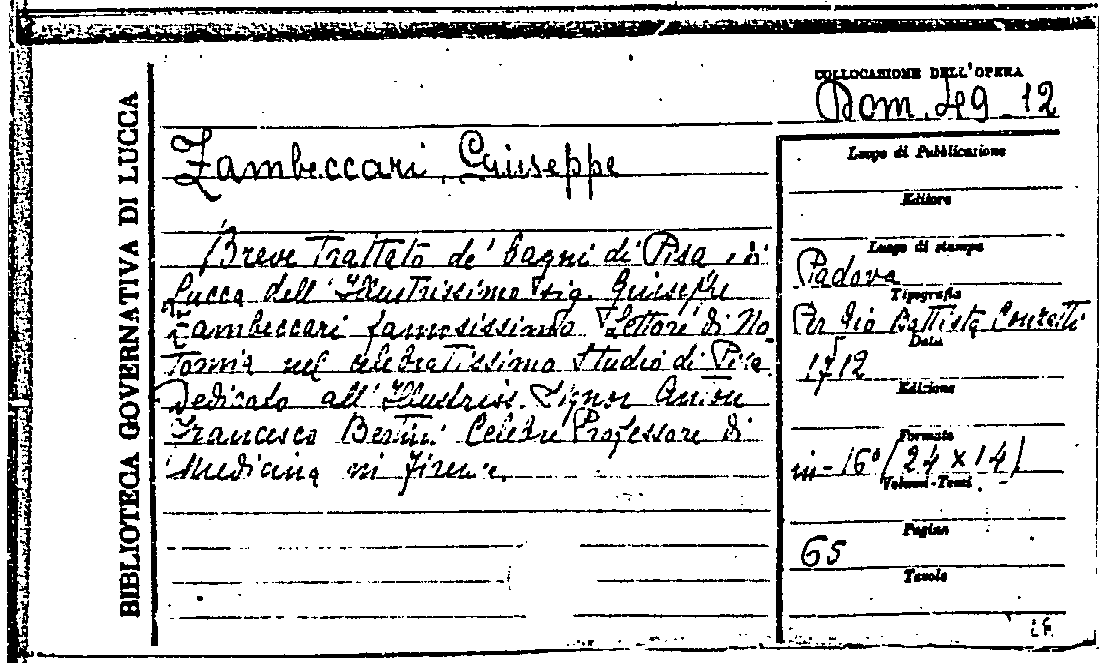 BIBLIOTECA GOVERNATIVA DI LUCCA
COLLOCAZIONE DELL'OPERA
Dom. 49_12
Zambeccari, Giuseppe
Breve Trattato de' Bagni di Pisa, e di
Lucca dell'Illustrissimo Sig. Giuseppe
Zambeccari famosissimo Lettore di No
tomia nel celebratissimo Studio di Pisa.
Dedicato all'Illustriss. Signor Anton
Francesco Bertini Celebre Professore di
Medicina in Firenze.
Luogo di Pubblicazione
Editore
Luogo di stampa
Padova
Tipografia
Per Gio Battista Conzatti
Data
1712
Edizione
Formato
in-16° (24 x 14)
Volumi-Tomi
Pagine
65
Tavole